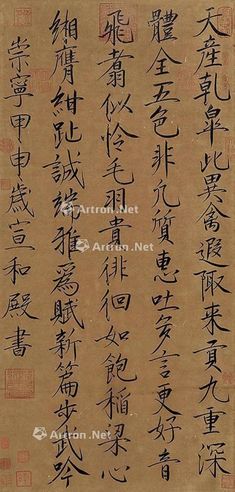 天產乾皐此異禽遐陬來貢九重深
體全五色非凡質惠吐多言更好音
飛翥似憐毛羽貴徘徊如飽稻粱心
緗膺紺趾誠端雅爲賦新篇步武吟
崇寧甲申歲宣和殿書
Artron.Net
Artron.Net
Artron.Net